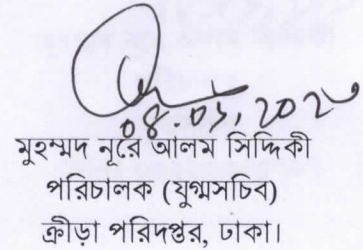 মুহম্মদ নূরে আলম সিদ্দিকী
পরিচালক (যুগ্মসচিব)
ক্রীড়া পরিদপ্তর, ঢাকা।